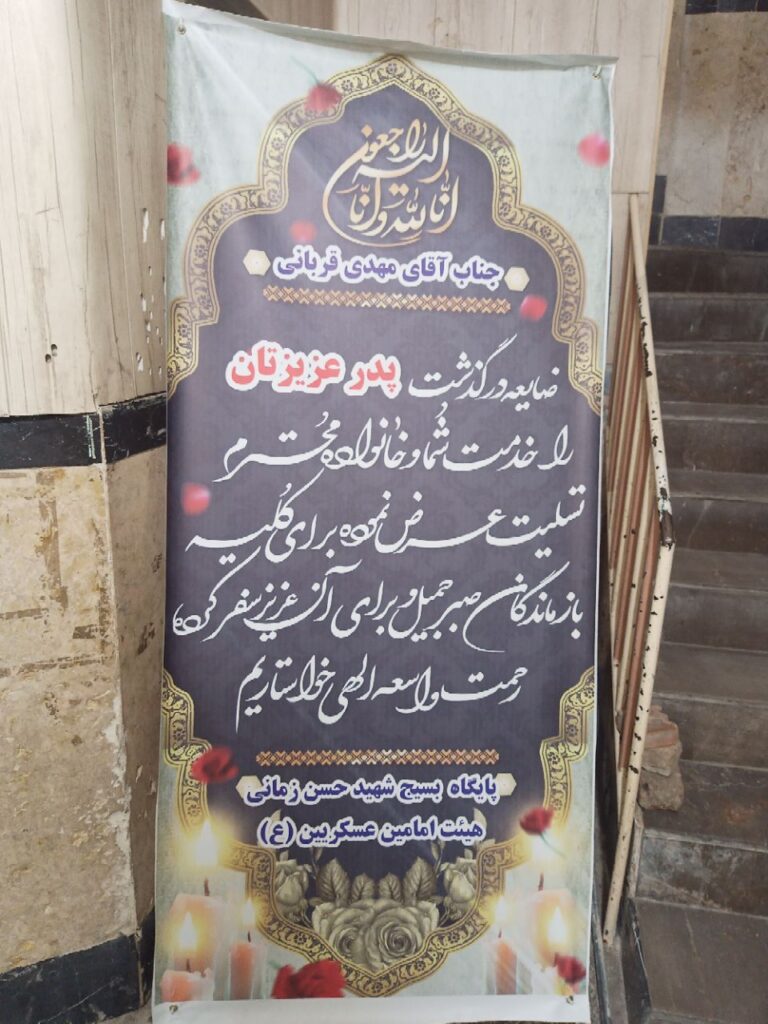 انا لله و انا الیه راجعون
جناب آقای مهدی قربانی
ضایعه درگذشت پدر عزیزتان
را خدمت شما و خانواده محترم
تسلیت عرض نموده برای کلیه
بازماندگان صبر جمیل و برای آن عزیز سفر کرده
رحمت واسعه الهی خواستاریم
پایگاه بسیج شهید حسن زمانی
هیئت امامین عسکریین (ع)